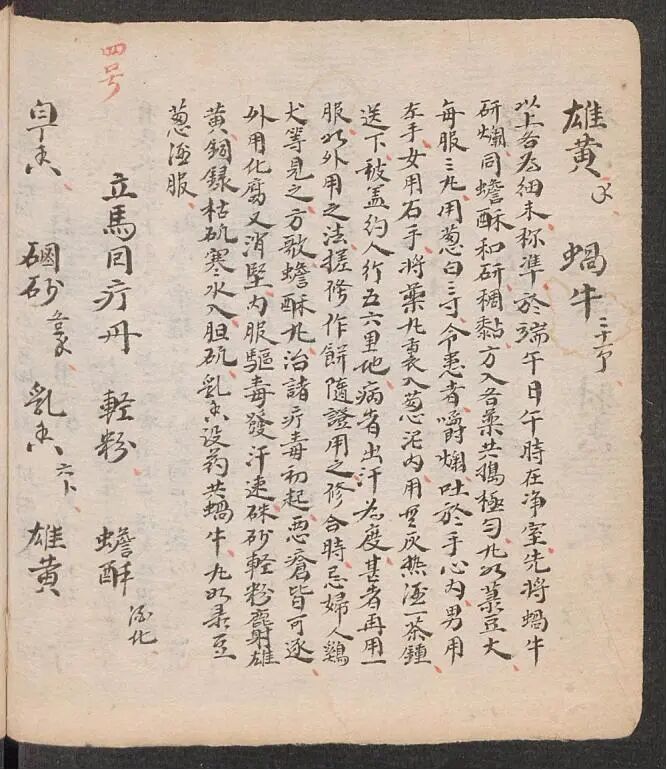 雄黃 蝸牛
以上各為細末称準於端午日午時在净室先將蝸牛
研爛同蟾酥和研稠黏方入各藥共搗極匀丸如菉豆大
每服三丸用葱白三寸令患者嚼爛吐於手心內男用
左手女用石手將藥丸裹入葱泥內用無灰熱酒一茶鍾
送下被盖約人行五六里地病者出汗為度甚者再用一
服如外用之法搓條作餅隨證用之修合時忌婦人鷄
犬等見之方歌蟾酥丸治諸疔毒初起惡瘡皆可逐
外用化腐又消堅内服驅毒發汗速硃砂輕粉麝射雄
黃銅録枯矾寒水入胆矾乳香没药共蝸牛丸如菉豆
葱酒服
四号
立馬回疔丹 輕粉 蟾酥 酒化
白丁香 硇砂 乳香 六卜 雄黃